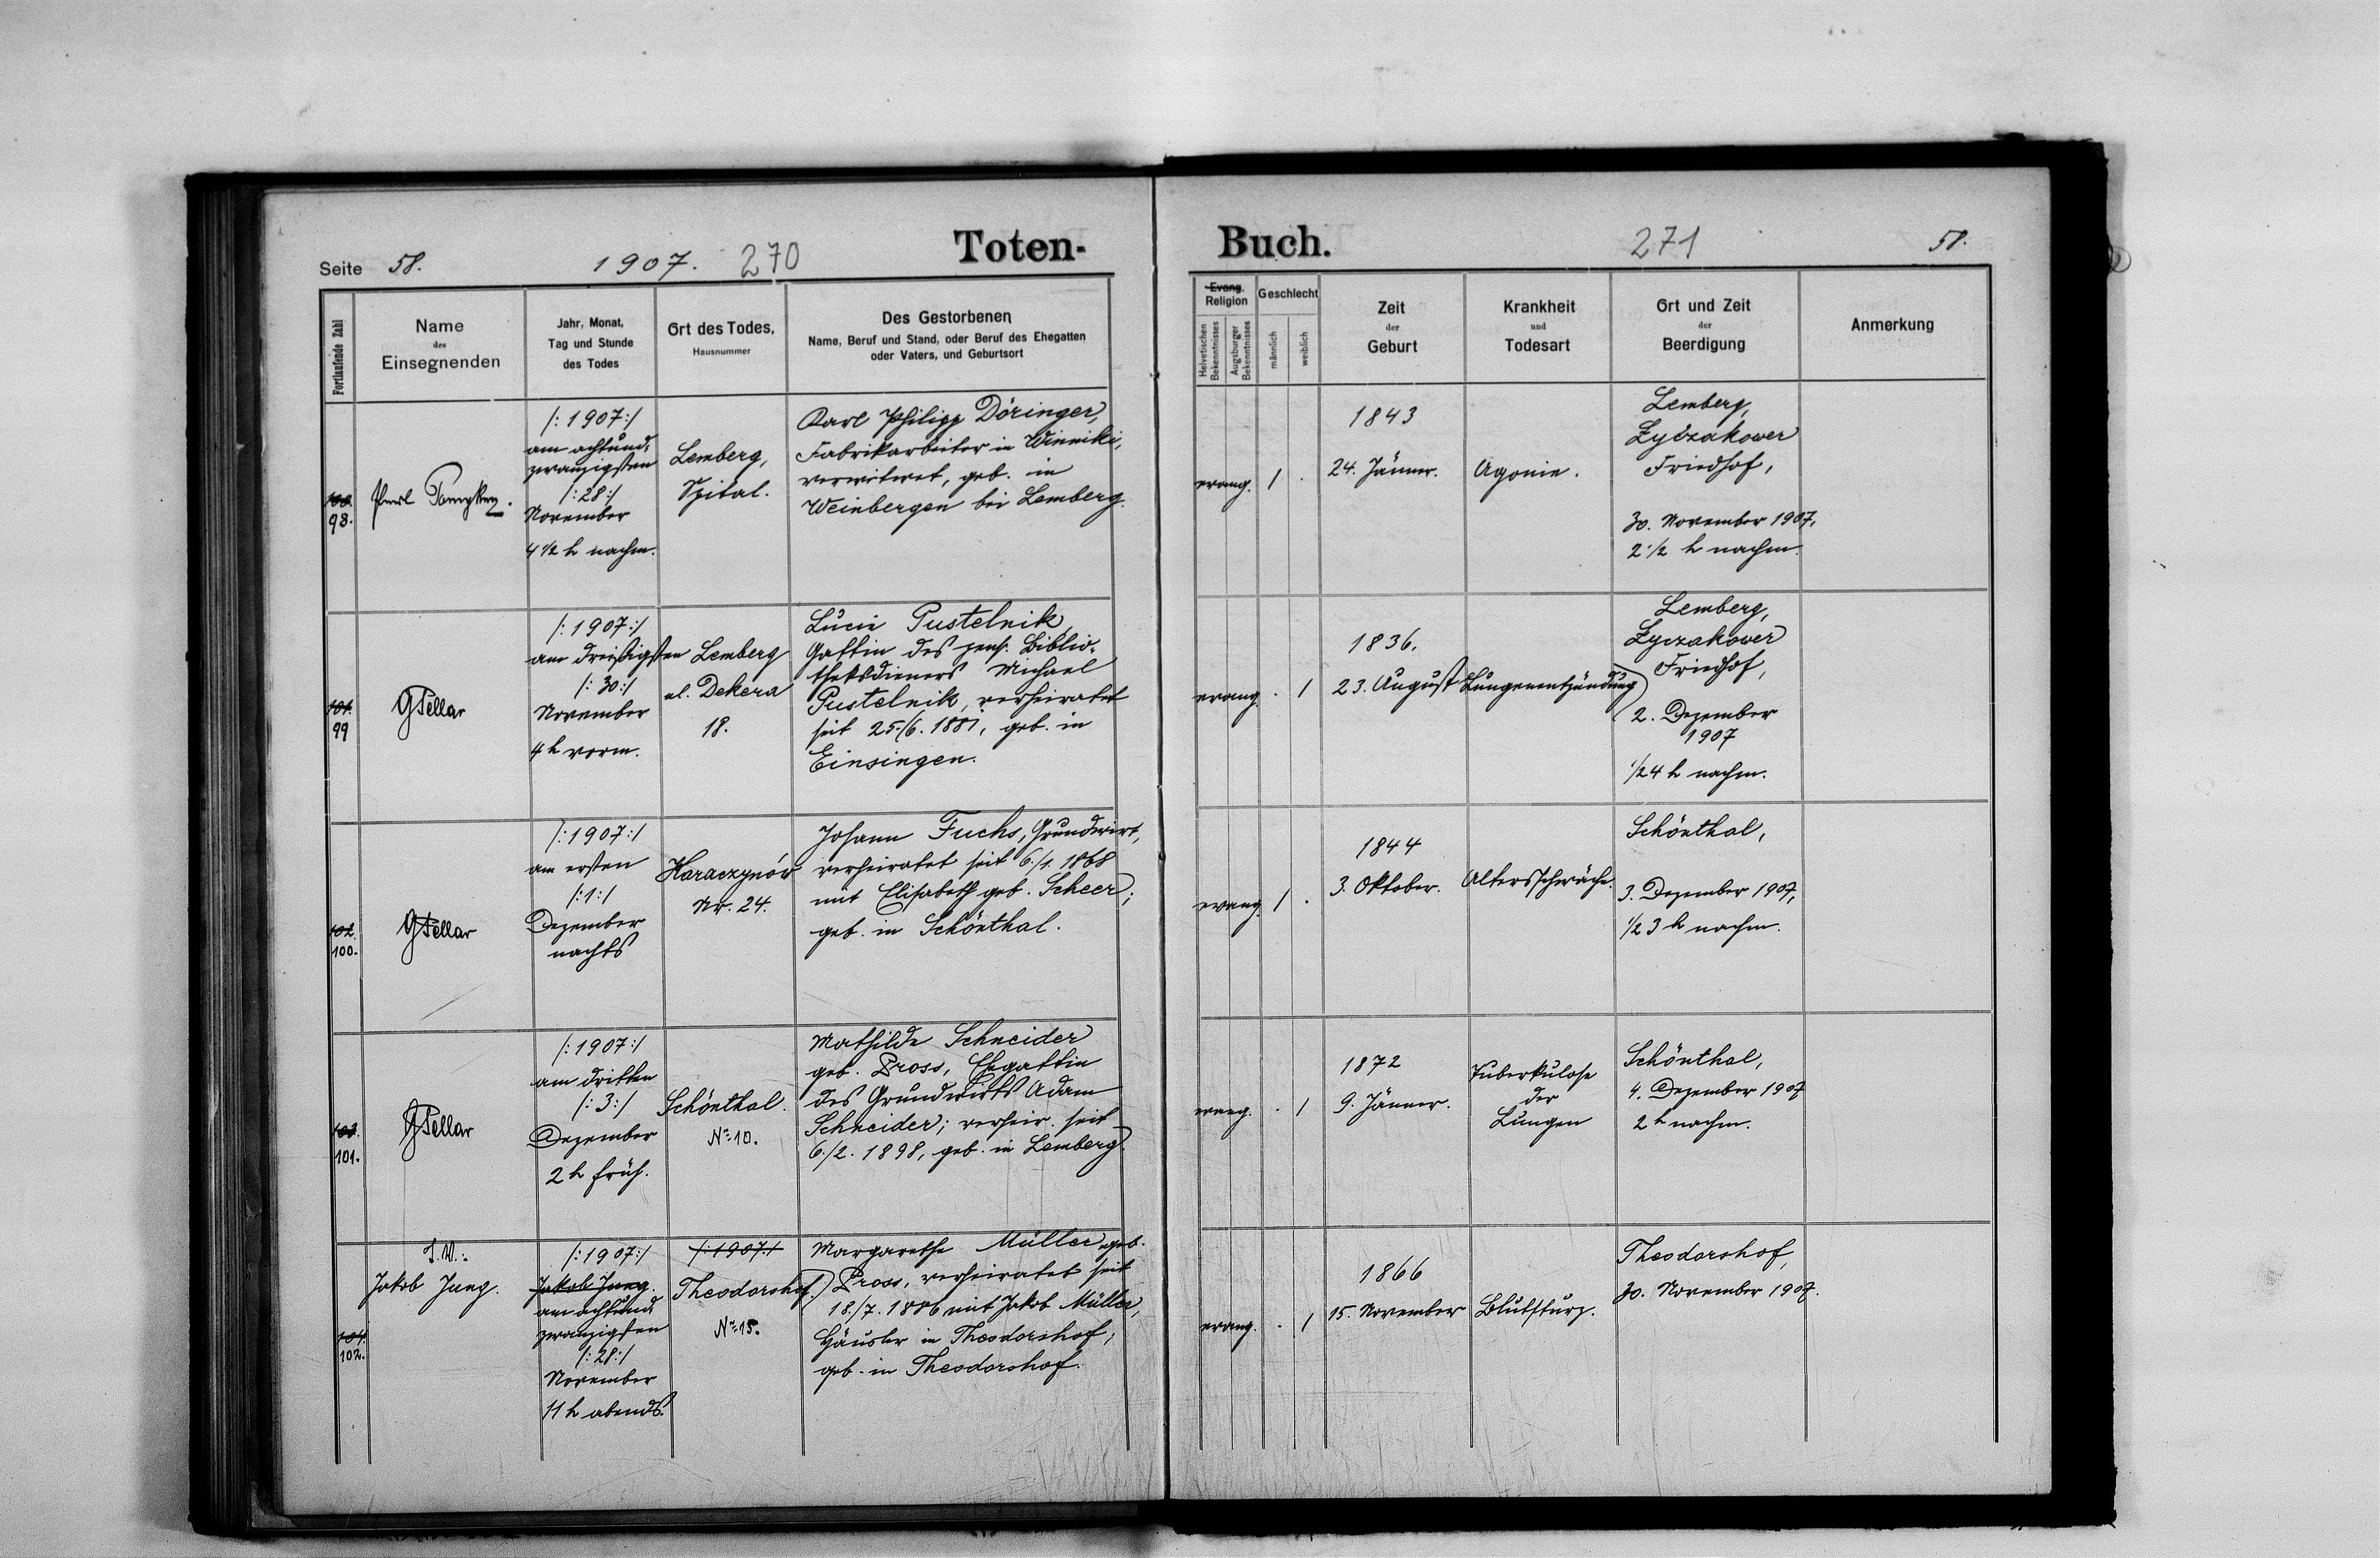 Seite 58.
1907. 270
Toten-
Fortlaufende Zahl
Name
des
Einsegnenden
Jahr, Monat,
Tag und Stunde
des Todes
Ort des Todes,
Hausnummer
Des Gestorbenen
Name, Beruf und Stand, oder Beruf des Ehegatten
oder Vaters, und Geburtsort
100.
98.
/:1907:/
am achtund-
zwanzigsten
/:28:/
November
4 1/2 h nachm.
Lemberg,
Spital.
Karl Philipp Döringer,
Fabrikarbeiter in Winniki,
verwitwet, geb. in
Weinbergen bei Lemberg.
101.
99
GKellar
/:1907:/
am dreißigsten
/:30:/
November
4 h vorm.
Lemberg
ul. Dekera
18.
Lucie Pustelnik,
Gattin des pens. Biblio-
theksdieners Michael
Pustelnik, verheiratet
seit 25./6. 1881, geb. in
Einsingen.
102.
100.
GKellar
/:1907:/
am ersten
/:1:/
Dezember
nachts
Karaczynów
Nr. 24.
Johann Fuchs, Grundwirt,
verheiratet seit 6./1. 1868
mit Elisabeth geb. Scheer;
geb. in Schönthal.
103.
101.
GKellar
/:1907:/
am dritten
/:3:/
Dezember
2 h früh.
Schönthal.
No 10.
Mathilde Schneider
geb. Pross, Ehegattin
des Grundwirts Adam
Schneider; verheir. seit
6./2. 1898, geb. in Lemberg.
104.
102.
I.V.:
Jakob Jung.
/:1907:/
Jakob Jung.
am achtund-
zwanzigsten
/:28:/
November
11 h abends.
/:1907:/
Theodorshof.
No 15.
Margarethe Müller geb.
Pross, verheiratet seit
18./7. 1886 mit Jakob Müller,
Häusler in Theodorshof;
geb. in Theodorshof.
Buch.
271
58.
Evang.
Religion
Helvetischen
Bekenntnisses
Augsburger
Bekenntnisses
Geschlecht
männlich
weiblich
Zeit
der
Geburt
Krankheit
und
Todesart
Ort und Zeit
der
Beerdigung
Anmerkung
evang. 1 .
1843
24. Jänner.
Agonie.
Lemberg,
Łyczakower
Friedhof,
30. November 1907,
2 1/2 h nachm.
evang. . 1
1836.
23. August
Lungenentzündung
Lemberg,
Łyczakower
Friedhof,
2. Dezember
1907
1/2 4 h nachm.
evang. 1 .
1844
3. Oktober.
Altersschwäche.
Schönthal,
3. Dezember 1907,
1/2 3 h nachm.
evang. . 1
1872
9. Jänner.
Tuberkulose
der
Lungen
Schönthal,
4. Dezember 1907
2 h nachm.
evang. . 1
1866
15. November
Blutsturz.
Theodorshof,
30. November 1907.